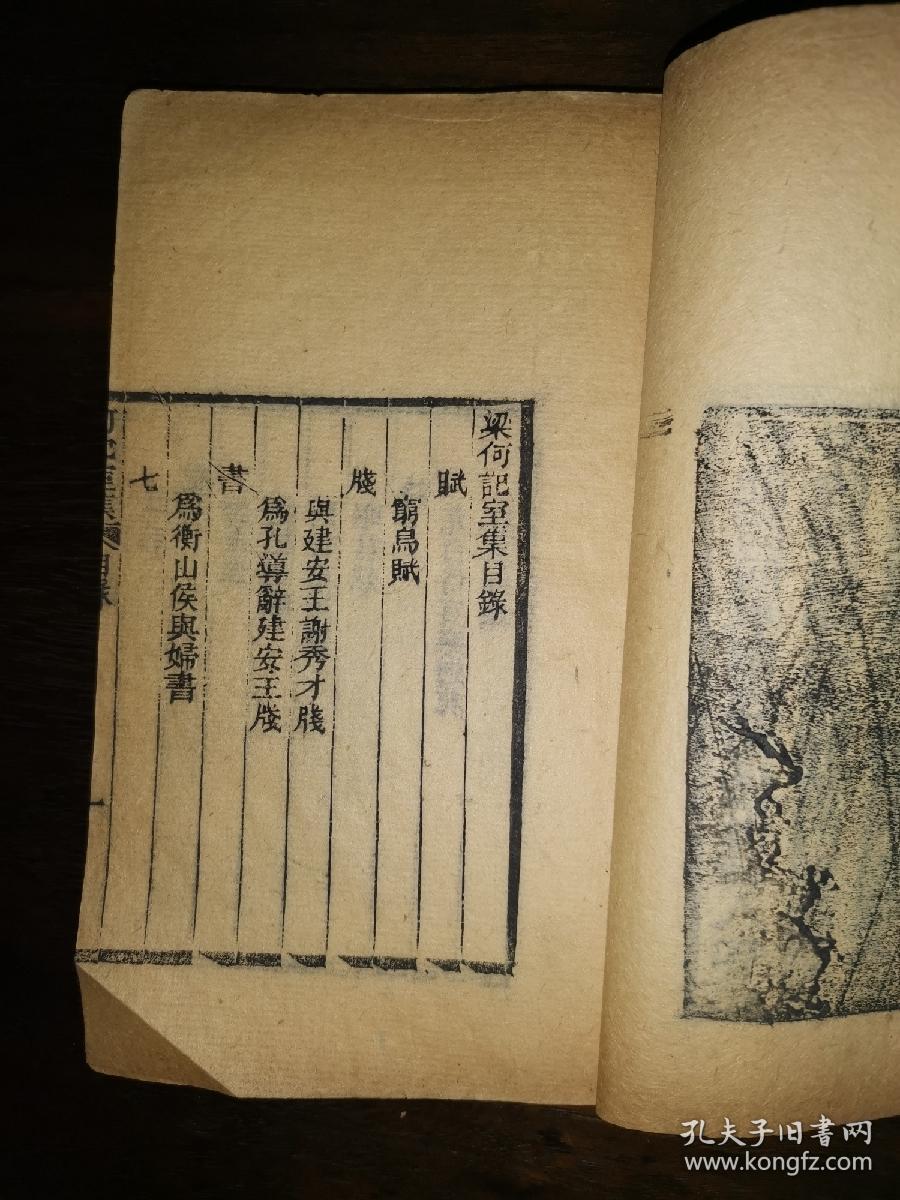 梁何記室集目錄
賦
窮鳥賦
牋
與建安王謝秀才牋
為孔導辭建安王牋
書
為衡山侯與婦書
七
何記室集 目錄
一
孔夫子旧书网
www.kongfz.com